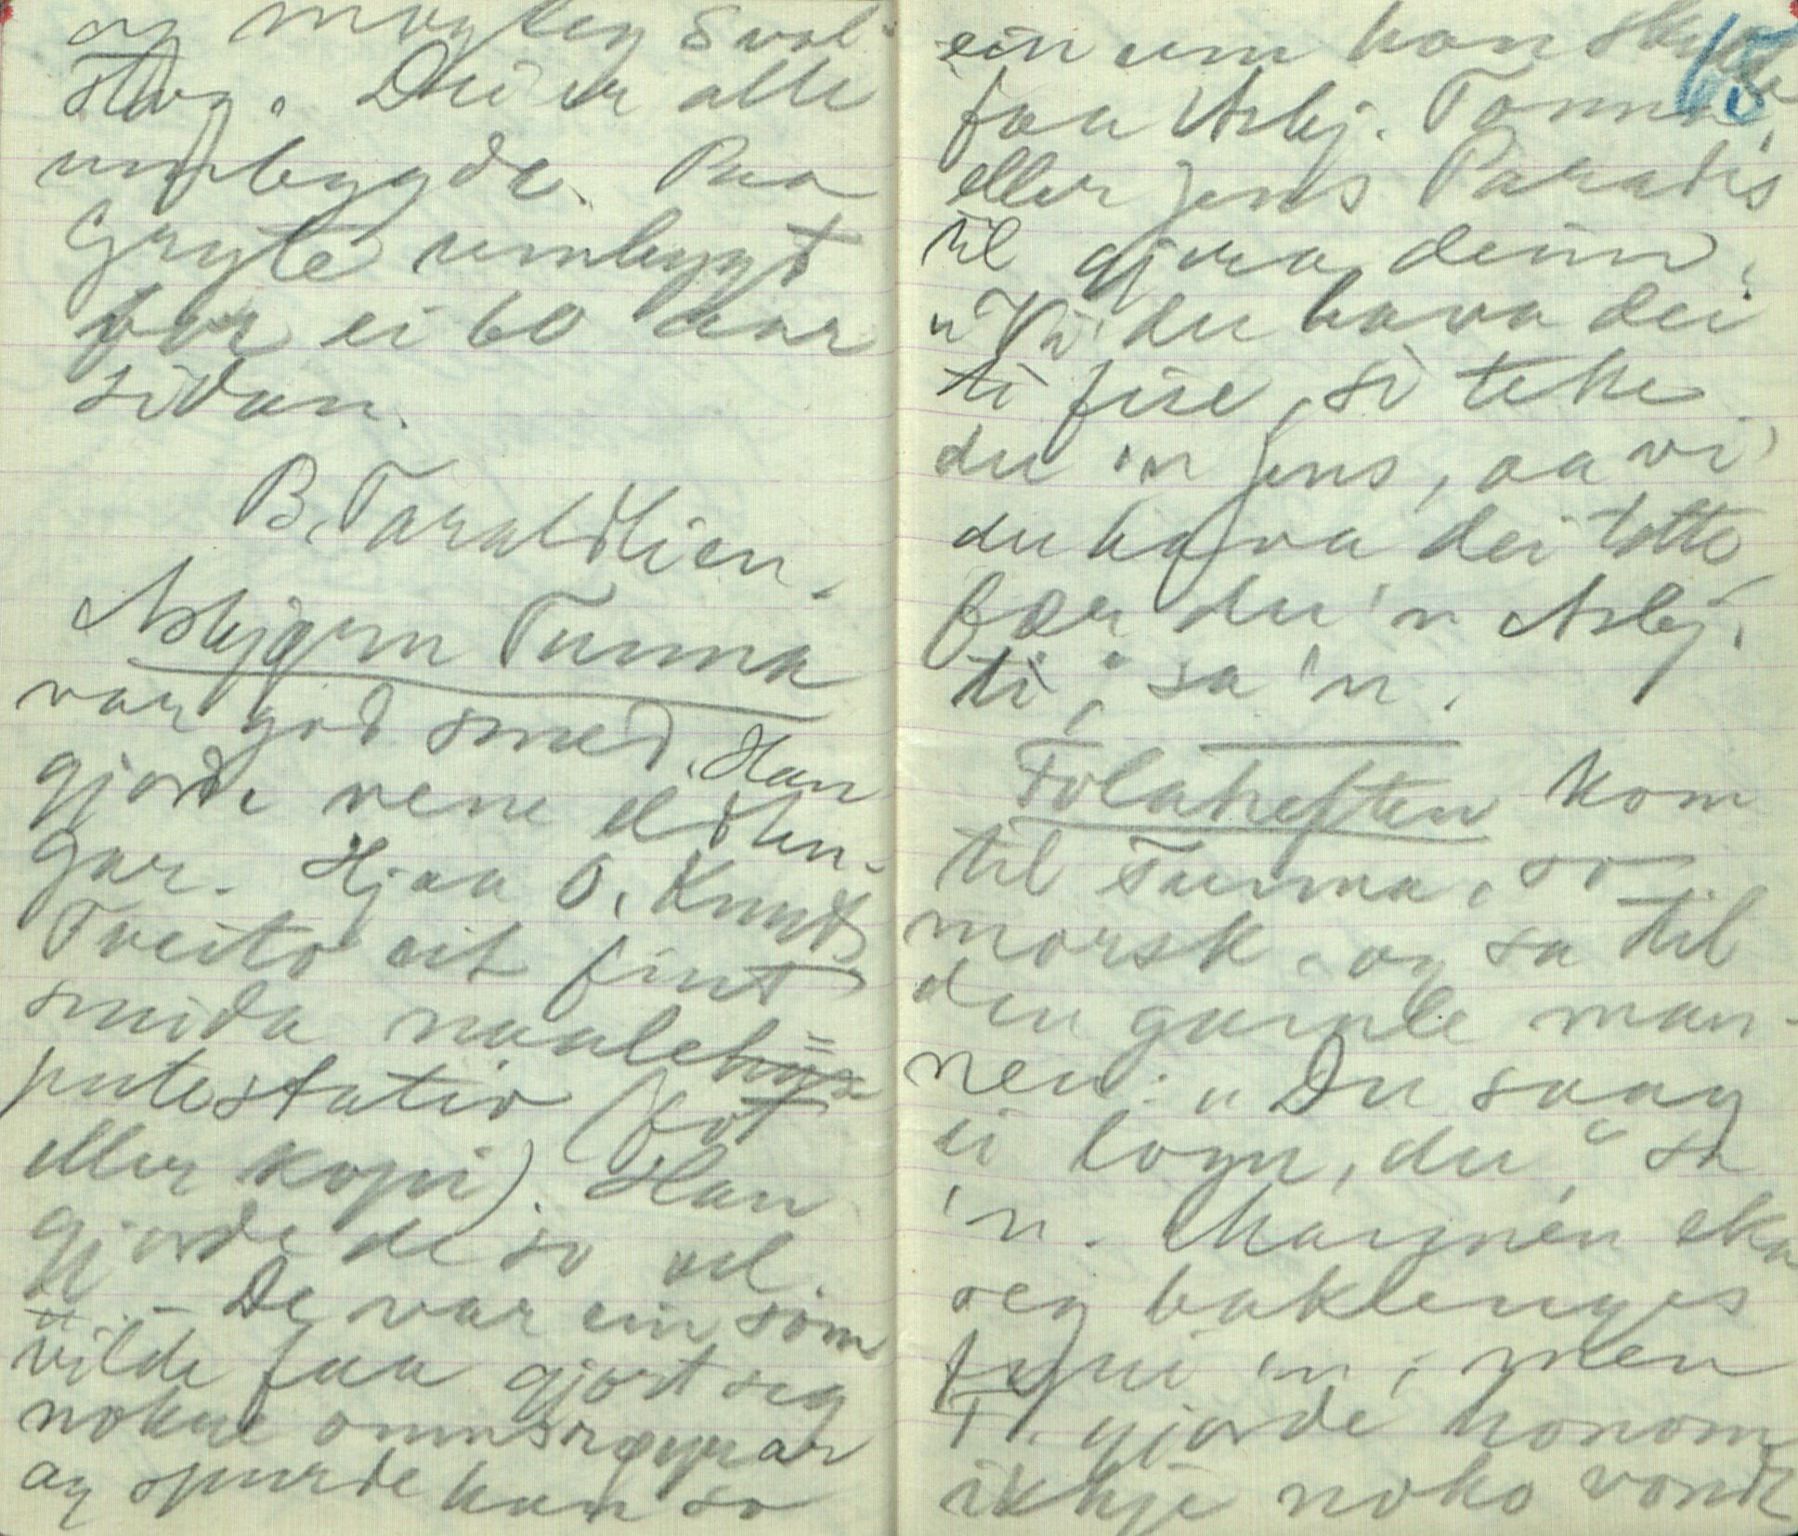 og mogleg Sval-
stog. Dei er alle
umbygde. Paa
Gryte umbygt
for ei 60 aar
sidan.
B. Taraldlien.
Asbjørn Tunna
var god smed. Han
gjorde vene eldsten-
gar. Hjaa O. Knuts
Tveito eit fint
smida naalehys
putestativ (fot
eller kopi). Han
gjorde de so vel.
– De var ein som
vilde faa gjort seg
nokre omnsrøyrar
og spurde han so
65
ein um han skulde
faa Asbj. Tonna,
eller Jens Paradis
til gjera deim.
"Vi' du hava dei
ti fire, so teke
du 'n Jens, aa vi'
du hava dei totte
fær du 'n Asbj.
ti", sa 'n.
Folahesten kom
til Tunna, so
morsk, og sa til
den gamle man-
nen: "Du saag
ei logn, du" sa
'n.
seg baklenges
fypi 'n; men
F. gjorde honom
ikkje noko vondt